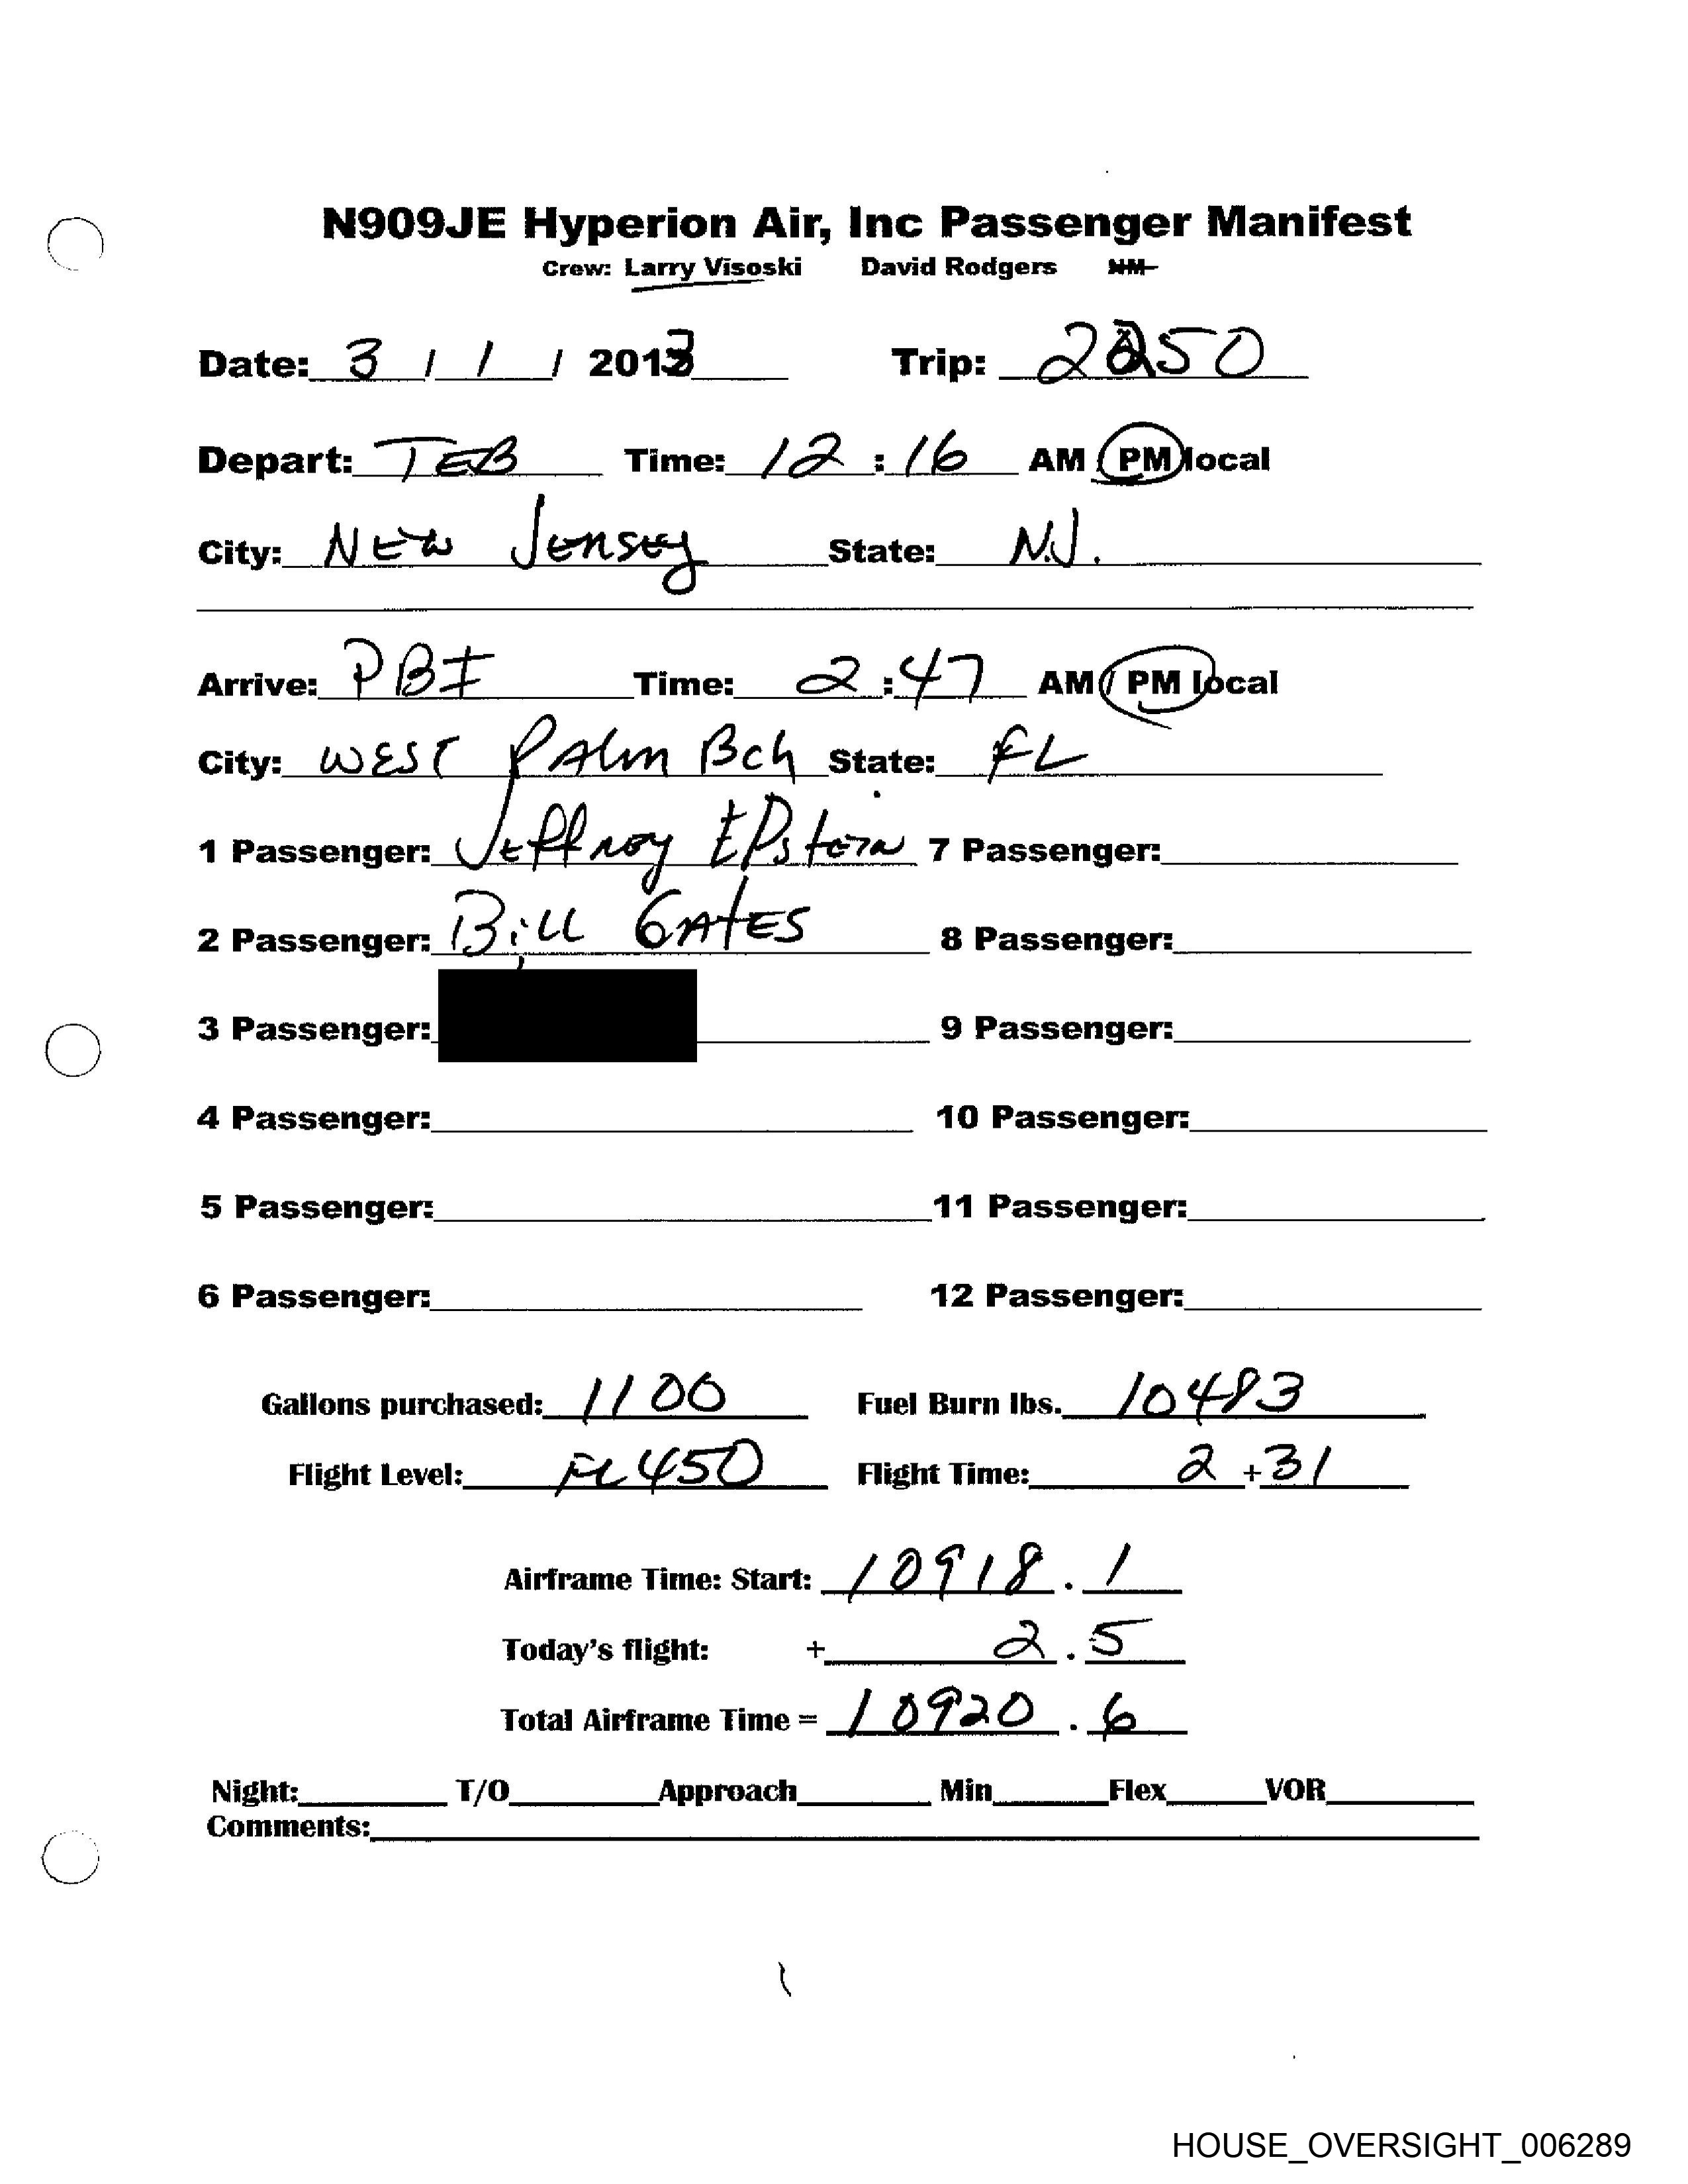 N909JE Hyperion Air, Inc Passenger Manifest
Crew: Larry Visoski David Rodgers NM
Date: 3 / 1 / 2013 Trip: 2250
Depart: TEB Time: 12 : 16 AM / PM local
City: NEW JERSEY State: N.J.
Arrive: PBI Time: 2 : 47 AM / PM local
City: WEST PAlm Bch State: FL
1 Passenger: JEffrey EPstein 7 Passenger:
2 Passenger: Bill GAtES 8 Passenger:
3 Passenger: 9 Passenger:
4 Passenger: 10 Passenger:
5 Passenger: 11 Passenger:
6 Passenger: 12 Passenger:
Gallons purchased: 1100 Fuel Burn lbs. 10483
Flight Level: FL450 Flight Time: 2 + 31
Airframe Time: Start: 10918 . 1
Today's flight: + 2 . 5
Total Airframe Time = 10920 . 6
Night: T/O Approach Min Flex VOR
Comments:
HOUSE_OVERSIGHT_006289